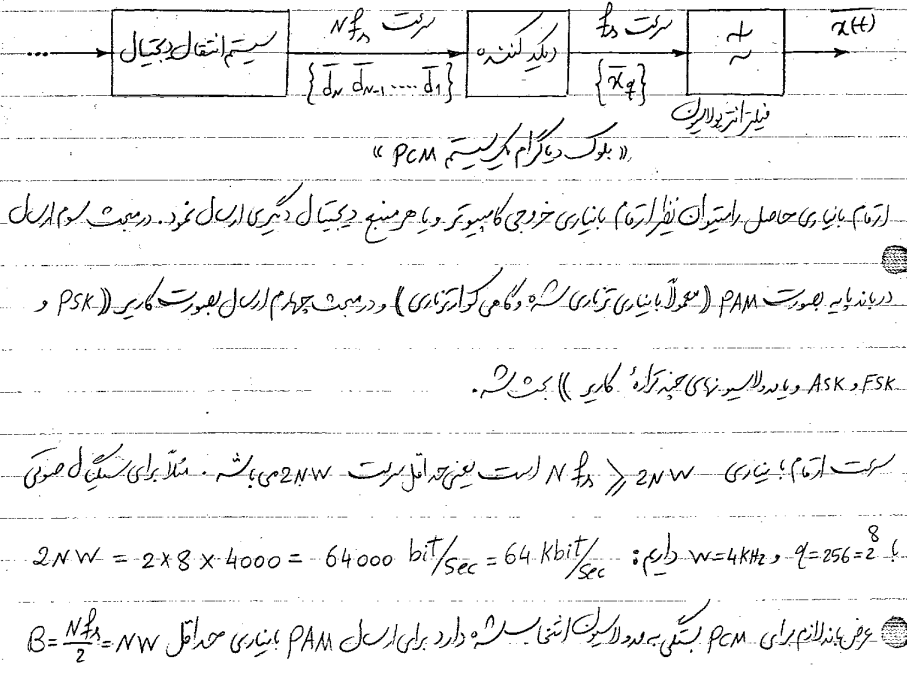 ... سیستم انتقال دیجیتال سرعت Nfs {d̄N d̄N-1 .... d̄1} دیکد کننده سرعت fs {x̄q} x̄(t)
فیلتر انترپولاسیون
«بلوک دیاگرام یک سیستم PCM»
ارقام باینری حاصل را میتوان نظیر ارقام باینری خروجی کامپیوتر و یا هر منبع دیجیتال دیگری ارسال نمود. در مبحث سوم ارسال
در باند پایه بصورت PAM (معمولاً باینری ترناری شده و گاهی کوارترناری) و در مبحث چهارم ارسال بصورت کاریر (PSK و
FSK و ASK و یا مدولاسیونهای چند ترازهٔ کاریر) بحث شد.
سرعت ارقام باینری Nfs ⩾ 2NW است یعنی حداقل سرعت 2NW می باشد. مثلاً برای سیگنال صوتی
با q=256=2⁸ و W=4KHz داریم: 2NW = 2×8×4000 = 64000 bit/sec = 64 Kbit/sec
عرض باند لازم برای PCM بستگی به مدولاسیون انتخاب شده دارد برای ارسال PAM باینری حداقل B=Nfs/2=NW